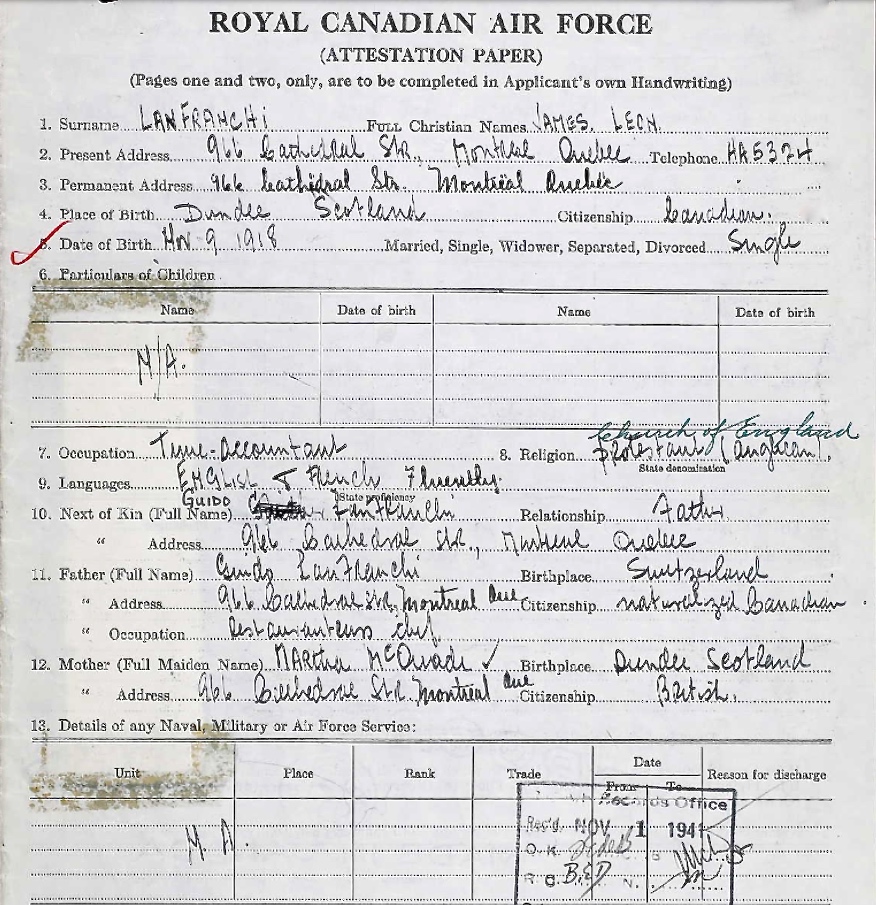 ROYAL CANADIAN AIR FORCE
(ATTESTATION PAPER)
(Pages one and two, only, are to be completed in Applicant's own Handwriting)
1. Surname LANFRANCHI FULL Christian Names JAMES. LEON.
2. Present Address 966 Cathedral Str., Montreal Quebec Telephone HA5324
3. Permanent Address 966 Cathédral Str. Montreal Quebéc
4. Place of Birth Dundee Scotland Citizenship Canadian.
5. Date of Birth Nov. 9 1918 Married, Single, Widower, Separated, Divorced Single
6. Particulars of Children
Name Date of birth Name Date of birth
N/A.
Church of England
7. Occupation Time-accountant 8. Religion protestant (anglican).
State denomination
9. Languages ENGLISH & French Fluently.
State proficiency
GUIDO
10. Next of Kin (Full Name) Lanfranchi Relationship Father
" Address 966 Cathedral Str., Montreal Quebec
11. Father (Full Name) Guido LanFranchi Birthplace Switzerland
" Address 966 Cathedral Str. Montreal Que Citizenship naturalized Canadian
" Occupation Restauranteurs chef
12. Mother (Full Maiden Name) MARtha McQuade ✓ Birthplace Dundee Scotland
" Address 966 Cathedral Str. Montreal Que Citizenship British.
13. Details of any Naval, Military or Air Force Service:
Unit Place Rank Trade Date From To Reason for discharge
N. A.
Records Office
Rec'd. NOV 1 1941
O.K.
R.C. B.E.D N.